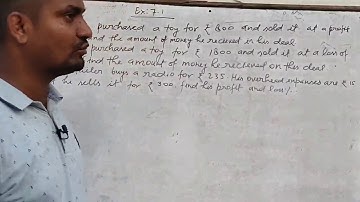 Ex. 7.1
purchased a toy for ₹ 1800 and sold it at a profit
nd the amount of money he recieved in his deal
purchased a toy for ₹ 1800 and sold it at a loss of
ind the amount of money he recieved on this deal.
buys a radio for ₹ 235. His overhead expenses are ₹ 15
he sells it for ₹ 300. find his profit and loss %.